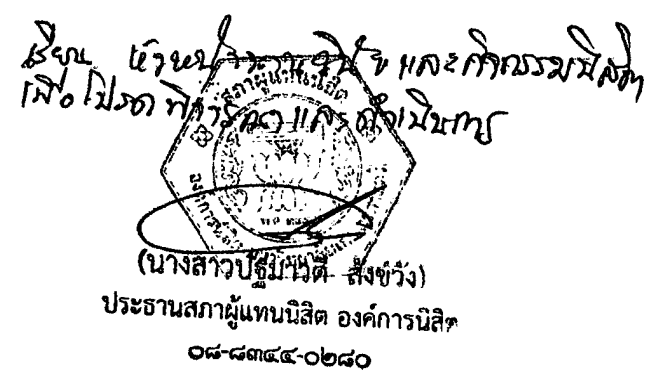 เรียน หัวหน้างานวินัย และกิจกรรมนิสิต
เพื่อโปรดพิจารณาและดำเนินการ
สภาผู้แทนนิสิต
(นางสาวปฐมาวดี สังข์วัง)
ประธานสภาผู้แทนนิสิต องค์การนิสิต
๐๘-๘๓๔๔-๐๒๘๐